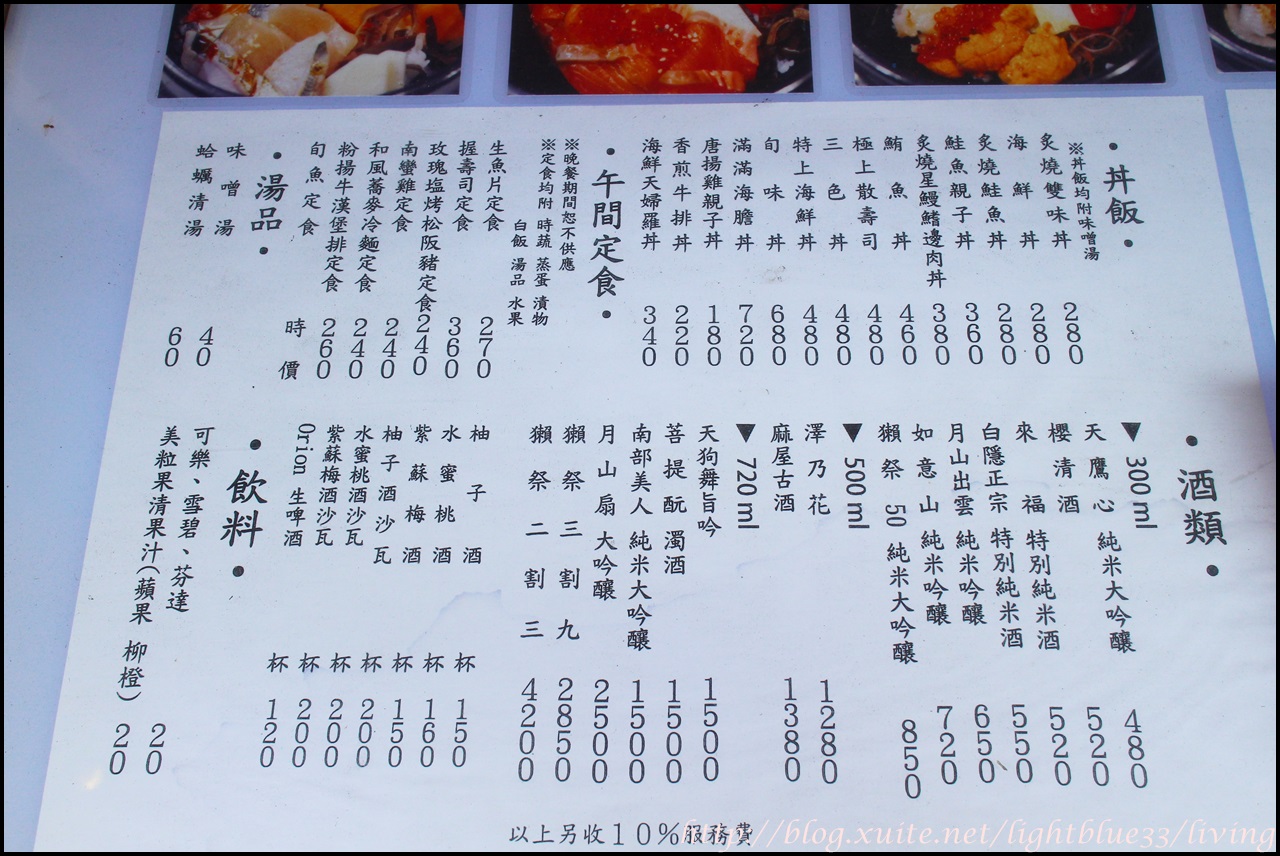 •丼飯•
※丼飯均附味噌湯
炙燒雙味丼 280
海鮮丼 280
炙燒鮭魚丼 280
鮭魚親子丼 360
炙燒星鰻鰭邊肉丼 380
鮪魚丼 460
極上散壽司 480
三色丼 480
特上海鮮丼 480
旬味丼 680
滿滿海膽丼 720
唐揚雞親子丼 180
香煎牛排丼 220
海鮮天婦羅丼 340
•午間定食•
※晚餐期間恕不供應
※定食均附 時蔬 蒸蛋 漬物
白飯 湯品 水果
生魚片定食 270
握壽司定食 360
玫瑰塩烤松阪豬定食 240
南蠻雞定食 240
和風蕎麥冷麵定食 240
粉揚牛漢堡排定食 260
旬魚定食 時價
•湯品•
味噌湯 40
蛤蠣清湯 60
•酒類•
▼300ml
天鷹心 純米大吟釀 480
櫻清酒 520
來福 特別純米酒 520
白隱正宗 特別純米酒 550
月山出雲 純米吟釀 650
如意山 純米吟釀 720
獺祭 50 純米大吟釀 850
▼500ml
澤乃花 1280
麻屋古酒 1380
▼720ml
天狗舞旨吟 1500
菩提酛 濁酒 1500
南部美人 純米大吟釀 1500
月山扇 大吟釀 2500
獺祭三割九 2850
獺祭二割三 4200
柚子酒 杯 150
水蜜桃酒 杯 160
紫蘇梅酒 杯 150
柚子酒沙瓦 杯 200
水蜜桃酒沙瓦 杯 200
紫蘇梅酒沙瓦 杯 200
Orion 生啤酒 杯 120
•飲料•
可樂、雪碧、芬達 20
美粒果清果汁(蘋果 柳橙) 20
以上另收10%服務費
http://blog.xuite.net/lightblue33/living